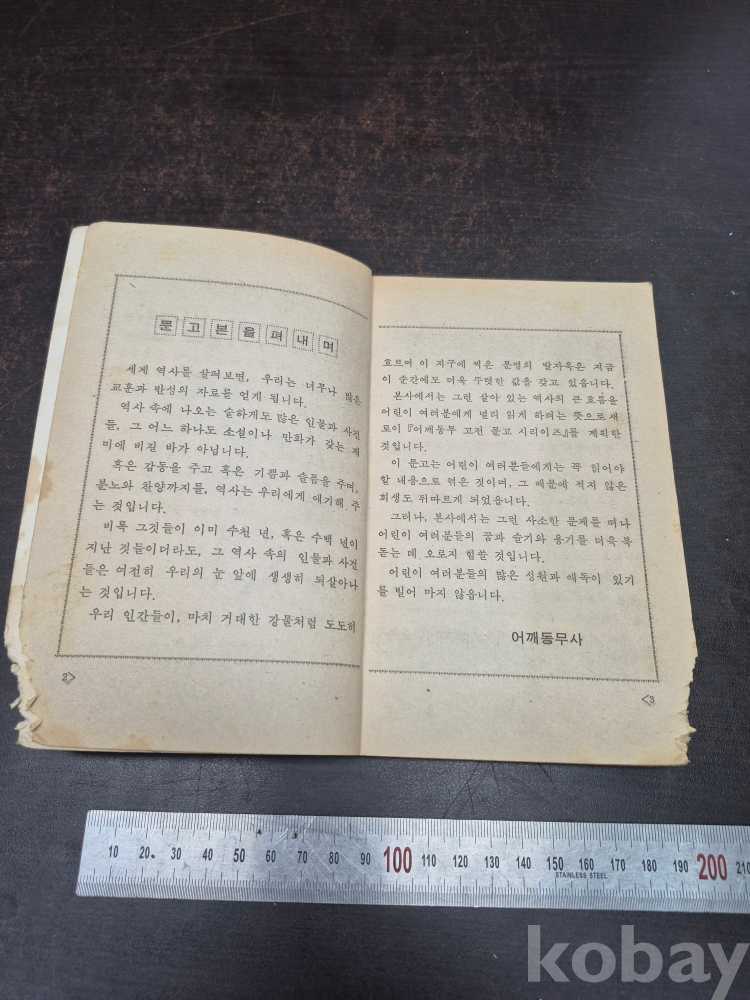 문고본을펴내며
세계 역사를 살펴보면, 우리는 너무나 많은
교훈과 반성의 자료를 얻게 됩니다.
역사 속에 나오는 숱하게도 많은 인물과 사건
들, 그 어느 하나도 소설이나 만화가 갖는 재
미에 비길 바가 아닙니다.
혹은 감동을 주고 혹은 기쁨과 슬픔을 주며,
분노와 찬양까지를, 역사는 우리에게 얘기해 주
는 것입니다.
비록 그것들이 이미 수천 년, 혹은 수백 년이
지난 것들이더라도, 그 역사 속의 인물과 사건
들은 여전히 우리의 눈 앞에 생생히 되살아나
는 것입니다.
우리 인간들이, 마치 거대한 강물처럼 도도히
2
흐르며 이 지구에 찍은 문명의 발자욱은 지금
이 순간에도 더욱 뚜렷한 값을 갖고 있읍니다.
본사에서는 그런 살아 있는 역사의 큰 흐름을
어린이 여러분에게 널리 읽게 하려는 뜻으로 새
로이 『어깨동무 고전 문고 시리이즈』를 계획한
것입니다.
이 문고는 어린이 여러분들에게는 꼭 읽어야
할 내용으로 엮은 것이며, 그 때문에 적지 않은
희생도 뒤따르게 되었읍니다.
그러나, 본사에서는 그런 사소한 문제를 떠나
어린이 여러분들의 꿈과 슬기와 용기를 더욱 북
돋는 데 오로지 힘쓸 것입니다.
어린이 여러분들의 많은 성원과 애독이 있기
를 빌어 마지 않읍니다.
어깨동무사
3
10 20 30 40 50 60 70 80 90 100 110 120 130 140 150 160 170 180 190 200 210
STAINLESS STEEL
kobay